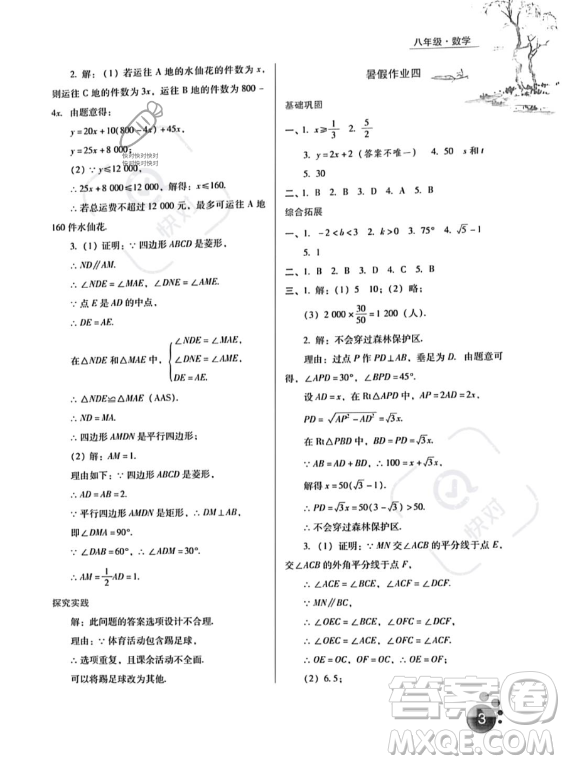 八年级·数学
2. 解：(1)若运往 A 地的水仙花的件数为 x，
则运往 C 地的件数为 3x，运往 B 地的件数为 800－
4x. 由题意得：
y=20x+10(800－4x)+45x，
y=25x+8 000；
(2)∵y≤12 000，
∴25x+8 000≤12 000，解得：x≤160，
∴若总运费不超过 12 000 元，最多可运往 A 地
160 件水仙花.
3. (1)证明：∵四边形 ABCD 是菱形，
∴ND∥AM.
∴∠NDE=∠MAE，∠DNE=∠AME.
∵点 E 是 AD 的中点，
∴DE=AE.
在△NDE 和△MAE 中，{∠NDE=∠MAE，
∠DNE=∠AME，
DE=AE.
∴△NDE≌△MAE (AAS).
∴ND=MA.
∴四边形 AMDN 是平行四边形；
(2)解：AM=1.
理由如下：∵四边形 ABCD 是菱形，
∴AD=AB=2.
∵平行四边形 AMDN 是矩形，∴DM⊥AB，
即∠DMA=90°.
∵∠DAB=60°，∴∠ADM=30°，
∴AM=1/2AD=1.
探究实践
解：此问题的答案选项设计不合理.
理由：∵体育活动包含踢足球，
∴选项重复，且课余活动不全面.
可以将踢足球改为其他.
暑假作业四
基础巩固
一、1. x≥1/3 2. 5/2
3. y=2x+2 (答案不唯一) 4. 50 s 和 t
5. 30
二、1. B 2. B 3. B 4. A
综合拓展
一、1. －2<b<3 2. b<3 3. 75° 4. √5－1
5. 1
二、1. B 2. D 3. A 4. B
三、1. 解：(1)5 10；(2)略；
(3)2 000×30/50=1 200 (人).
2. 解：不会穿过森林保护区.
理由：过点 P 作 PD⊥AB，垂足为 D. 由题意可
得，∠APD=30°，∠BPD=45°.
设 AD=x，在 Rt△APD 中，AP=2AD=2x.
PD=√AP²－AD²=√3x.
在 Rt△PBD 中，BD=PD=√3x.
∵AB=AD+BD，∴100=x+√3x.
解得 x=50(√3－1).
∴PD=√3x=50(3－√3)>50.
∴不会穿过森林保护区.
3. (1)证明：∵MN 交∠ACB 的平分线于点 E，
交∠ACB 的外角平分线于点 F，
∴∠ACE=∠BCE，∠ACF=∠DCF.
∵MN∥BC，
∴∠OEC=∠BCE，∠OFC=∠DCF.
∴∠OEC=∠OCE，∠OFC=∠OCF.
∴OE=OC，OF=OC，∴OE=OF.
(2)6.5；
3
快对
快对
答案圈
MXQE.COM